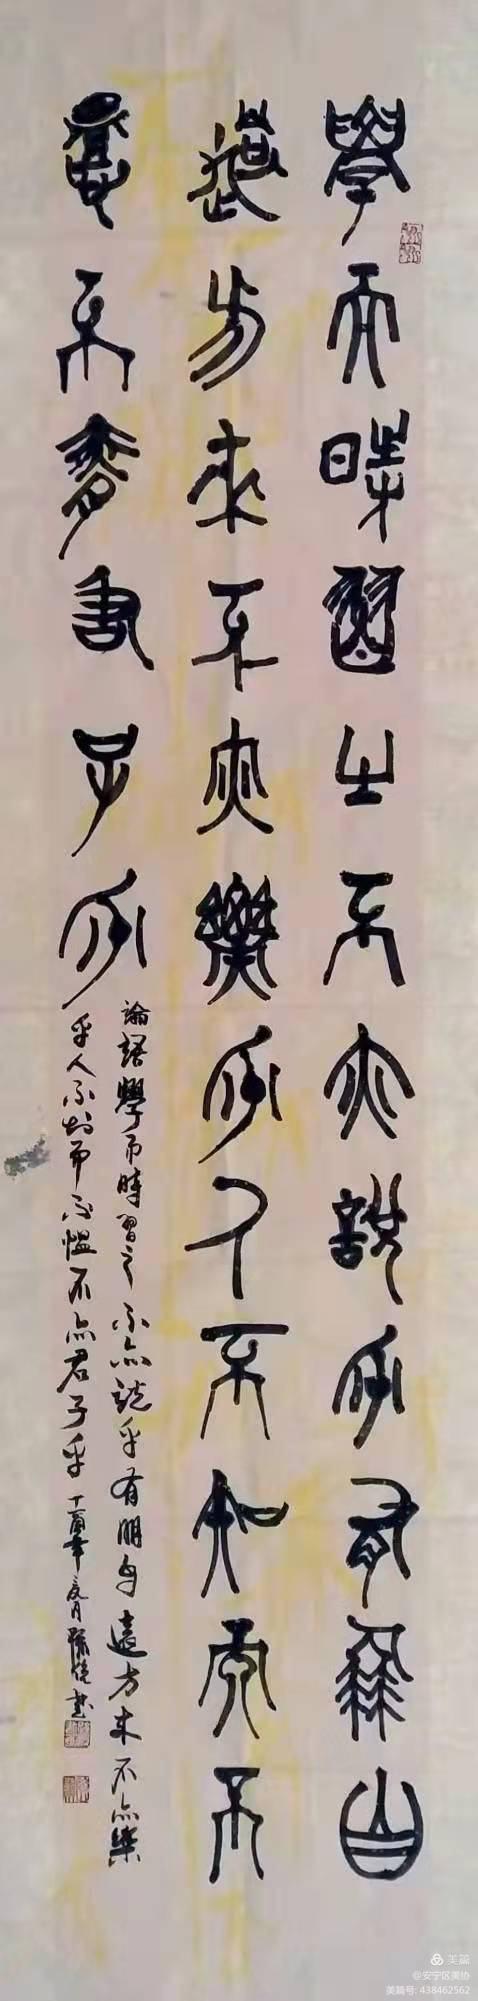 學而時習之不亦說乎有朋自
遠方來不亦樂乎人不知而不
慍不亦君子乎
論語學而時習之不亦說乎有朋自遠方來不亦樂
乎人不知而不慍不亦君子乎 丁酉年夏月
美篇
@安宁区美协
美篇号: 438462562